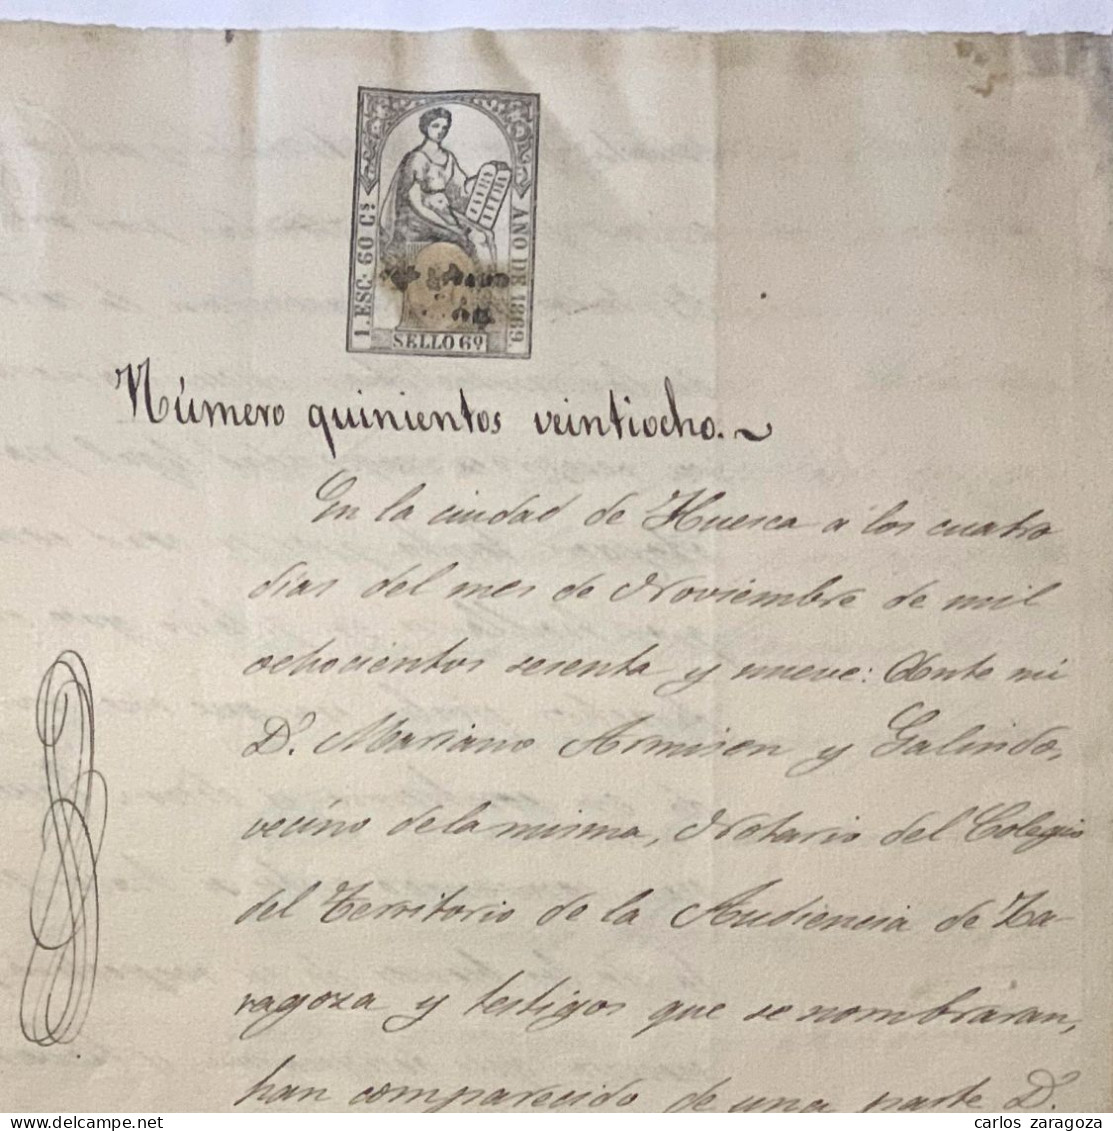 1. ESC. 60 Cs.
AÑO DE 1869.
SELLO 6º
Número quinientos veintiocho.~
En la ciudad de Huesca a los cuatro
dias del mes de Noviembre de mil
ochocientos sesenta y nueve: Ante mi
D. Mariano Armisen y Galindo,
vecino de la misma, Notario del Colegio
del Territorio de la Audiencia de Za-
ragoza y testigos que se nombraran,
han comparecido de una parte D.
carlos zaragoza